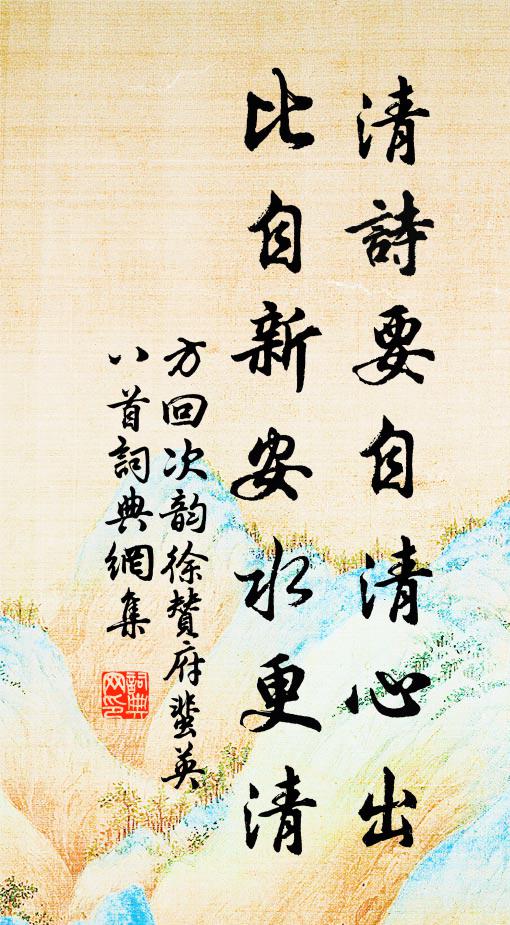 清詩要自清心出
比自新安水更清
方回次韵徐贊府蜚英
八首詞典網集
詞典
网印